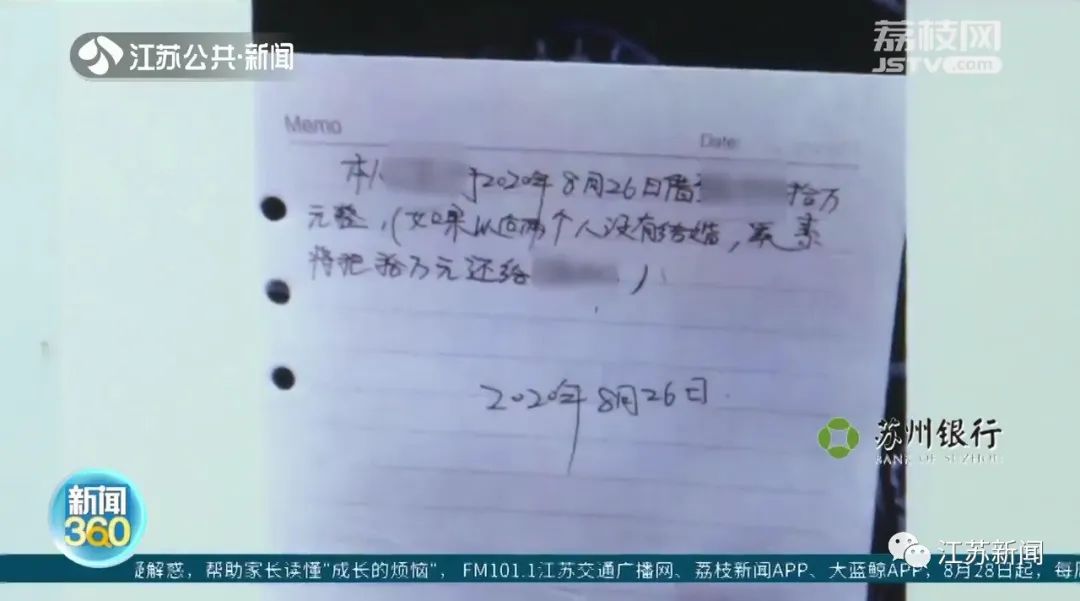 江苏公共·新闻
荔枝网
JSTV.com
Memo
Date:
本人 于2020年8月26日借 拾万
元整,(如果以后两个人没有结婚,
将把拾万元还给 )
2020年8月26日
苏州银行
BANK OF SUZHOU
新闻
360
江苏新闻
疑解惑,帮助家长读懂"成长的烦恼", FM101.1江苏交通广播网、荔枝新闻APP、大蓝鲸APP,8月28日起,每周